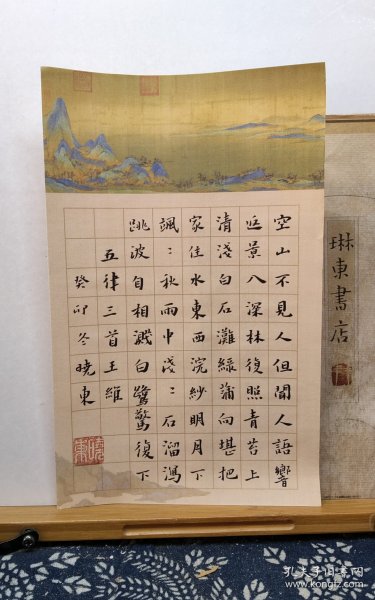 空山不見人但聞人語響
返景入深林復照青苔上
清淺白石灘綠蒲向堪把
家住水東西浣紗明月下
颯〻秋雨中淺〻石溜瀉
跳波自相濺白鷺驚復下
五律三首王維
癸卯冬曉東
曉東
琳東書店
孔夫子旧书网